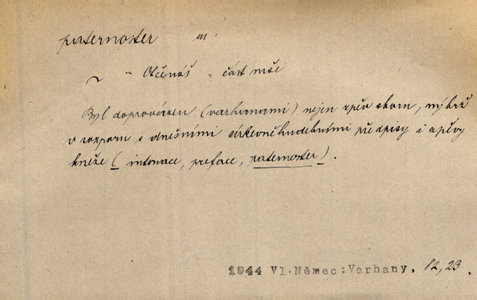 paternoster m.
~ - Otčenáš = část mše
Byl doprovázen (varhanami) nejen zpěv sboru, nýbrž
v rozporu s dnešními církevněhudebními předpisy i zpěvy
kněze ( intonace, preface, paternoster ).
1944 Vl.Němec:Varhany. 12,23.